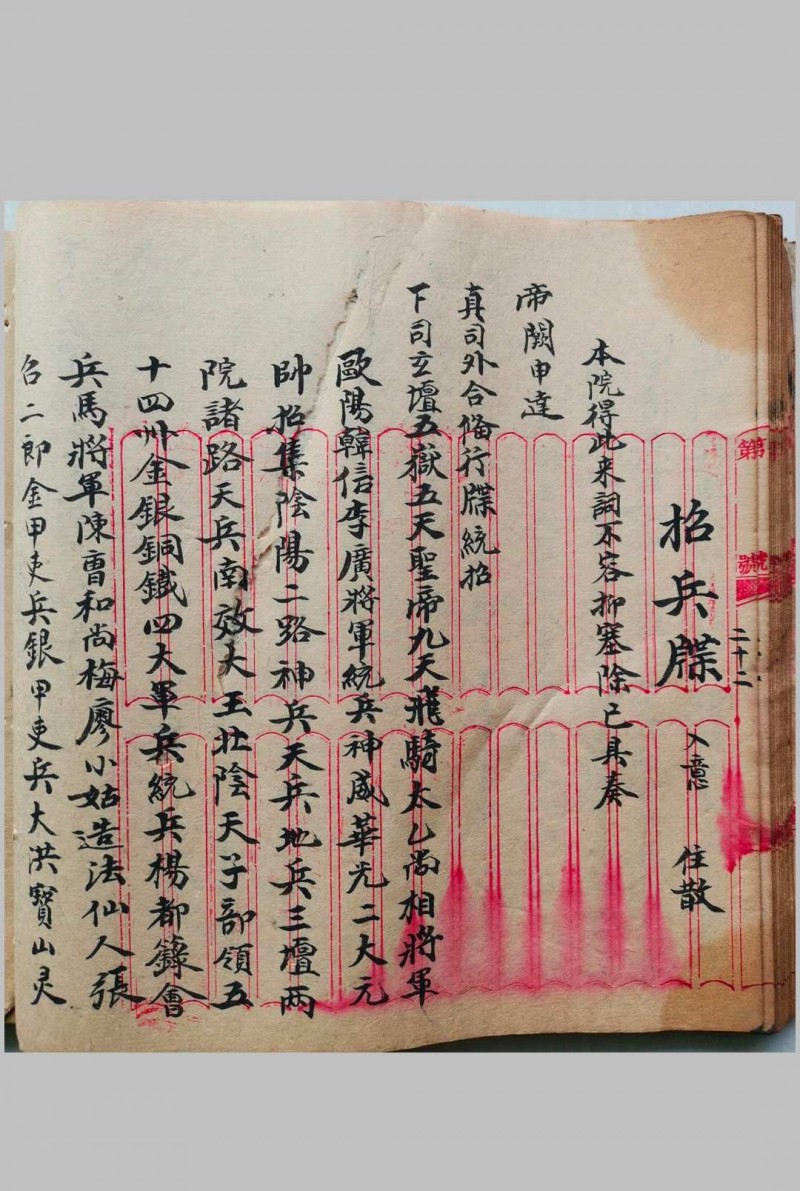 第
號
二十二
招兵牒 入意 住散
本院得此来詞不容抑塞除已具奏
帝闕申達
真司外合俻行牒統招
下司玄壇五嶽五天聖帝九天飛騎太乙尚相將軍
歐陽韓信李廣將軍統兵神威華光二大元
帥招集陰陽二路神兵天兵地兵三壇兩
院諸路天兵南效大王北陰天子部領五
十四州金銀銅鐵四大軍兵統兵楊都錄會
兵馬將軍陳曺和尚梅廖小姑造法仙人張
召二郎金甲吏兵銀甲吏兵大洪寳山灵